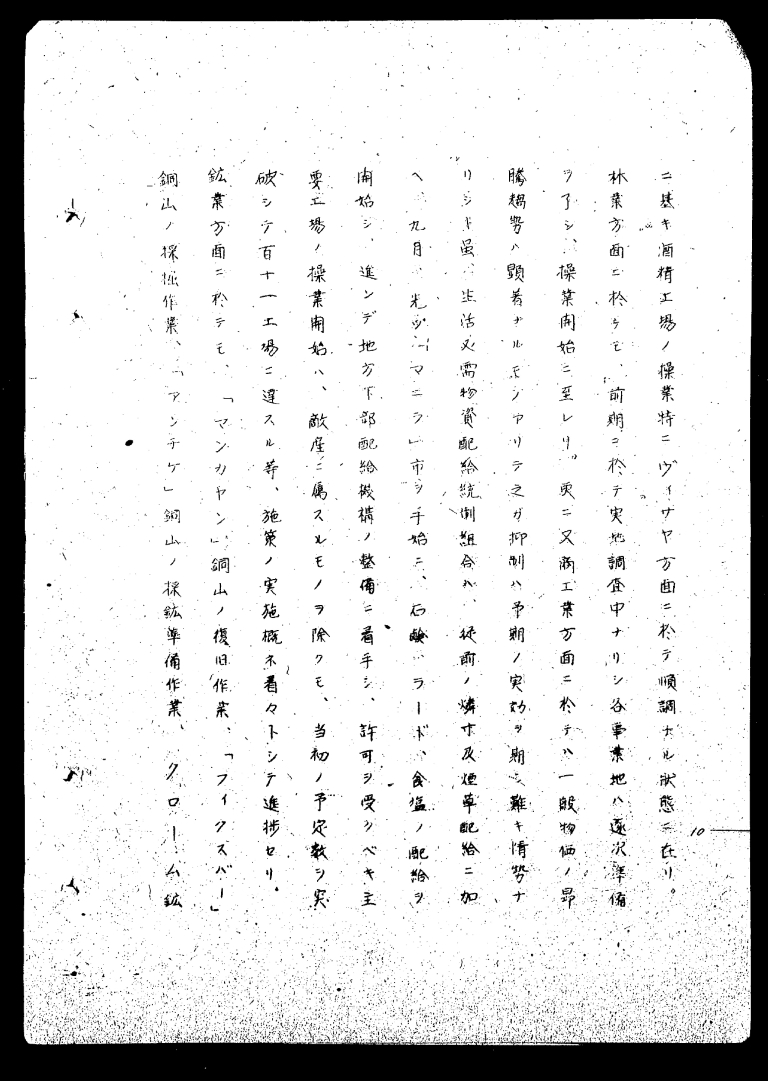 ニ基キ酒精工場ノ操業特ニヴィサヤ方面ニ於テ順調ナル状態ニ在リ。
林業方面ニ於テモ、前期ニ於テ実地調査中ナリシ各事業地ハ逐次準備
ヲ了シ、操業開始ニ至レリ。更ニ又商工業方面ニ於テハ一般物価ノ昂
騰趨勢ハ顕著ナルモノアリテ之ガ抑制ハ予期ノ実効ヲ期シ難キ情勢ナ
リシト虽、生活必需物資配給統制組合ハ、従前ノ燐寸及煙草配給ニ加
ヘ、九月、先ヅ「マニラ」市ヲ手始ニ、石鹸、ラード、食塩ノ配給ヲ
開始シ、進ンデ地方下部配給機構ノ整備ニ着手シ、許可ヲ受クベキ主
要工場ノ操業開始ハ、敵産ニ属スルモノヲ除クモ、当初ノ予定数ヲ突
破シテ百十一工場ニ達スル等、施策ノ実施概ネ着々トシテ進捗セリ。
鉱業方面ニ於テモ、「マンカヤン」銅山ノ復旧作業、「フイクスバー」
銅山ノ採掘作業、「アンチケ」銅山ノ採鉱準備作業、クローム鉱
10